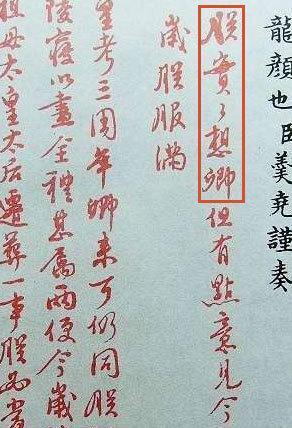 龍顏也臣羹堯謹奏
朕實々想卿但有點意見今
歲朕服滿
皇考三周年卿来可仍同朕
陵寢以盡全禮甚屬兩便今歲
祖母太皇太后遷葬一事朕必當